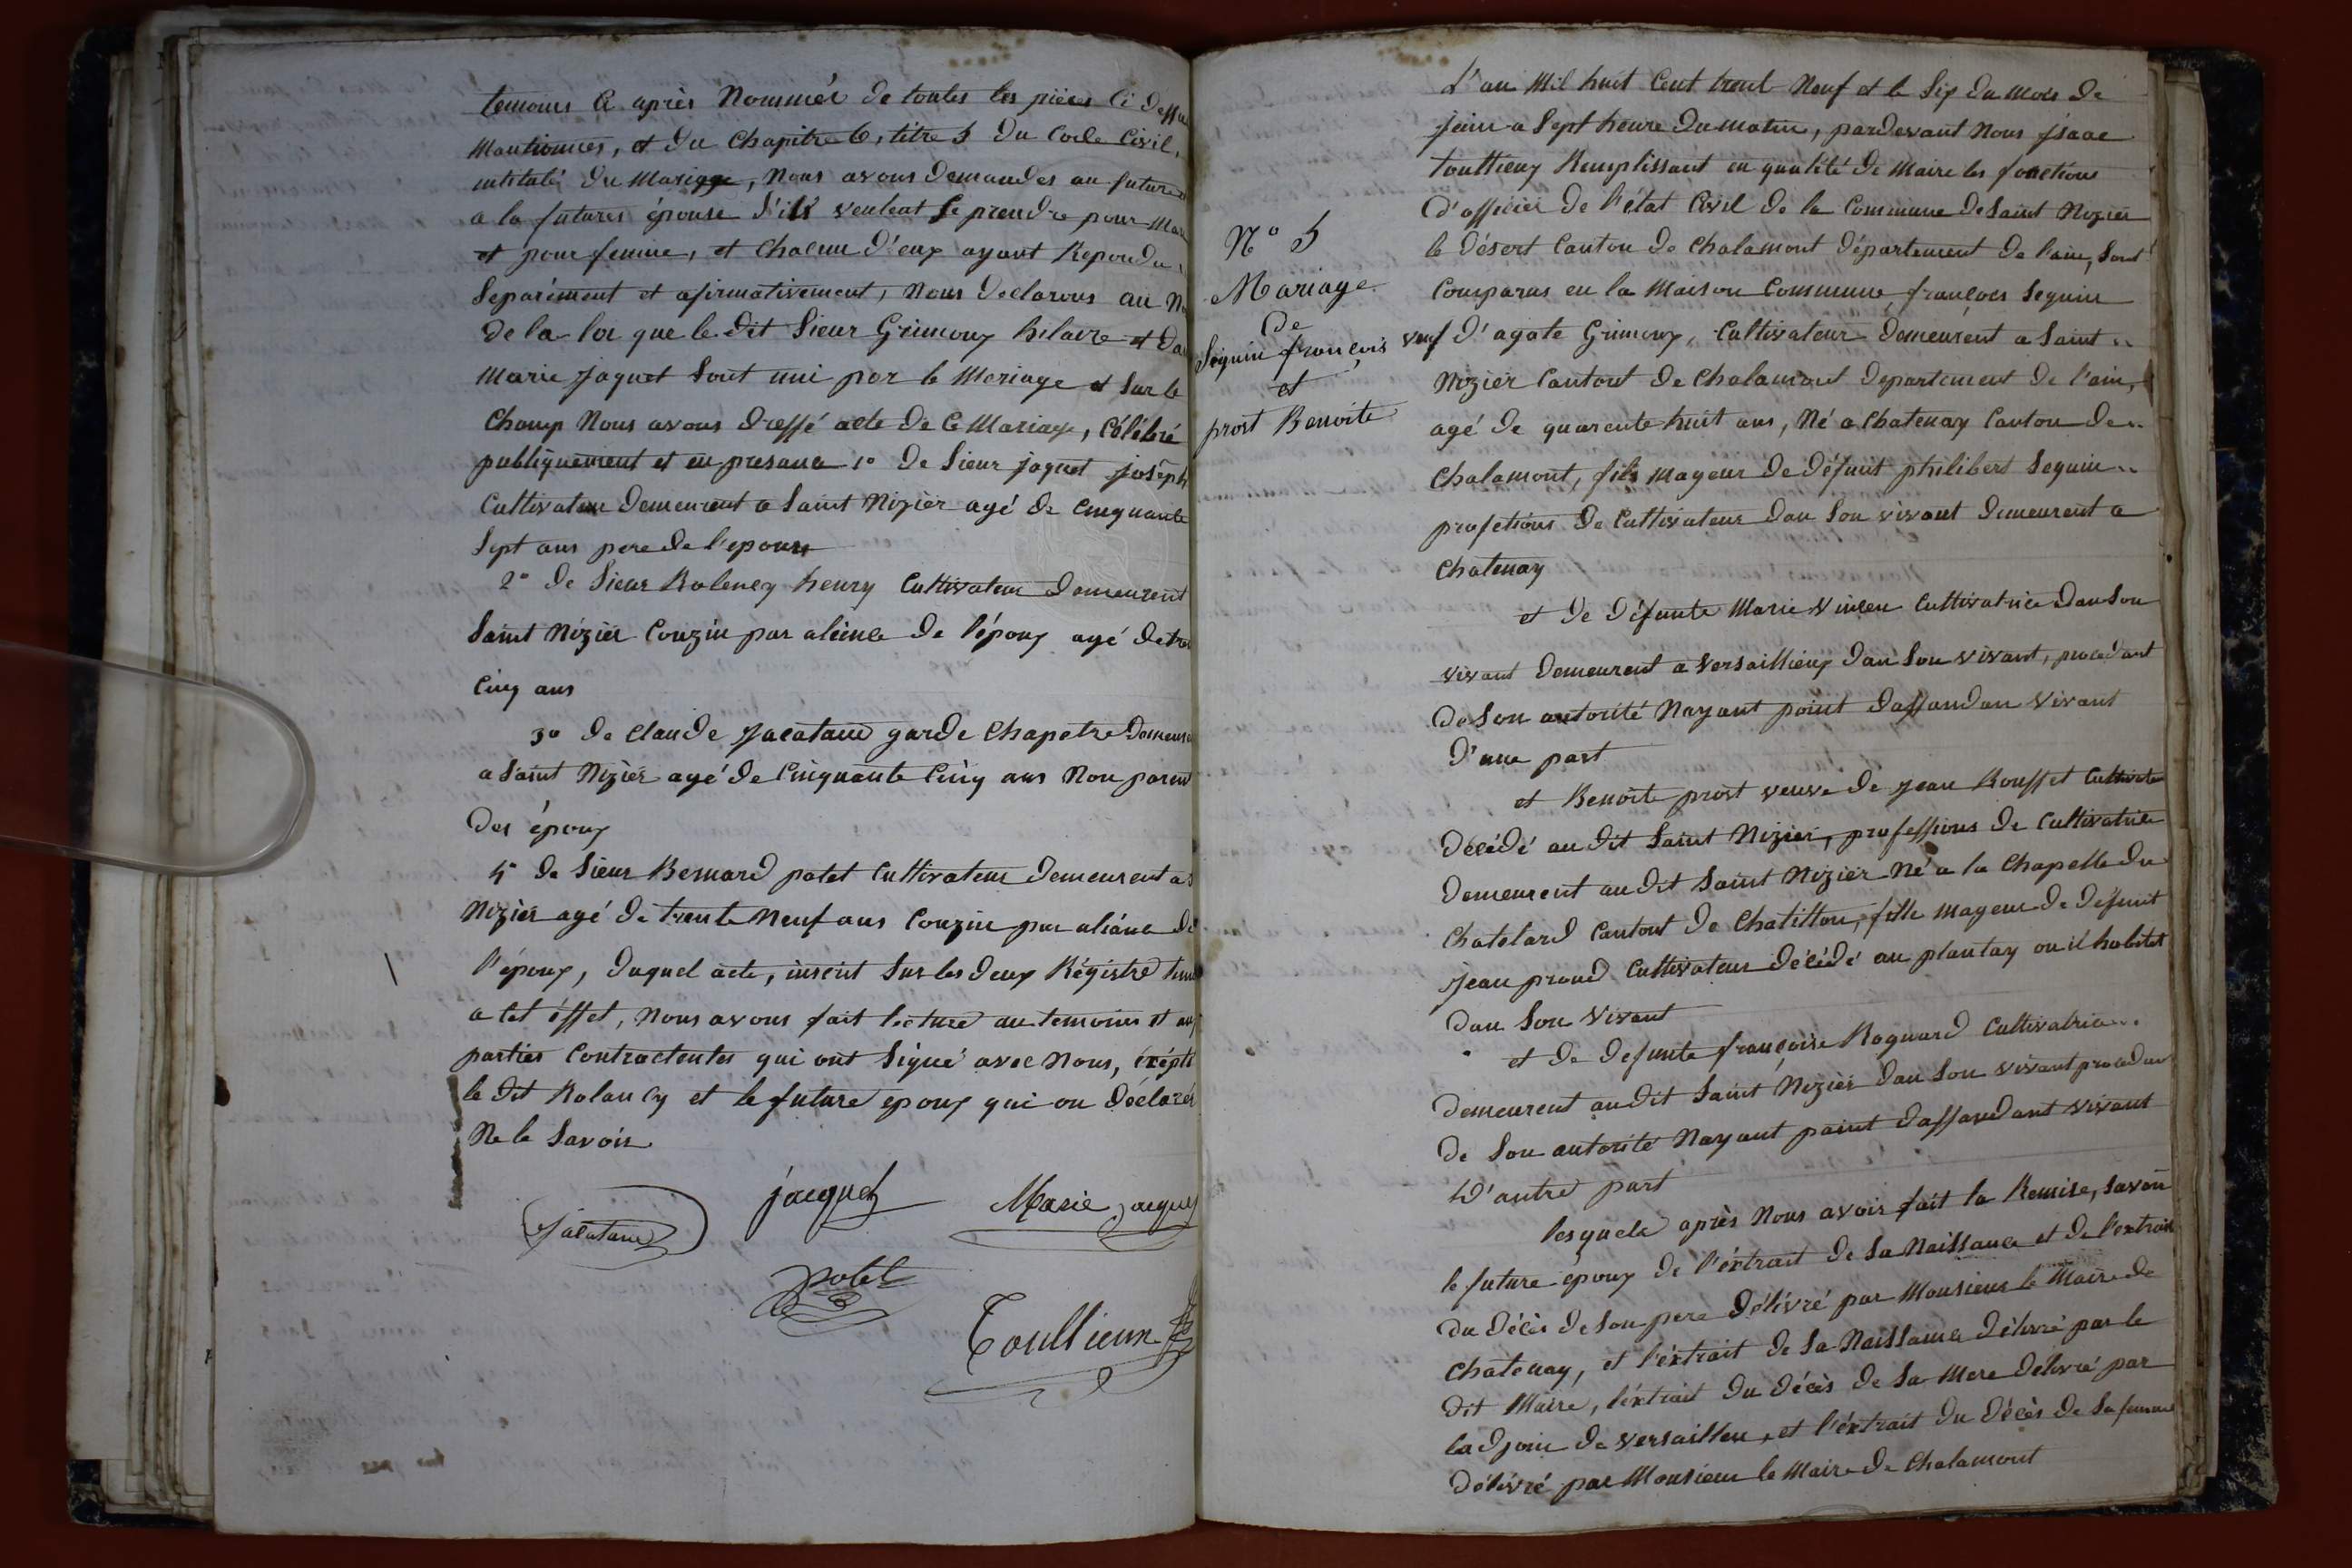 temoins Ci après Nommés de toutes les pièces Ci dessus
Mantionnées, et du Chapitre 6, titre 5 du Code Civil,
intitulé du Mariage, Nous avons demandes au future
a la futures épouse S'ils veuleat se prendre pour Mari
et pour femme, et chacun d'eux ayant Repondu
Separément et afirmativement, Nous declarons au N
de la loi que le dit Sieur Grimoux hilaire et da
Marie Jaquet Sont uni par le Meriage et Sur le
Champ Nous avons dressé acte de Ce Mariage, Célébré
publiquement et en presance 1º de Sieur jaquet joséph
Cultivateur Demeurent a Saint Nizier agé de Cinquante
Sept ans pere de l'epouse
2º de Sieur Rolency henry Cultivateur demeurent
Saint Nizier Couzin par aleince de l'époux agé de tre
Cinq ans
3º de Claude Jacataud garde Chapetre Demeure
a Saint Nizier agé de Cinquante Cinq ans Non parent
des époux
4º de Sieur Bernard patet Cultivateur Demeurent a S
Nizier agé de trente Neuf ans Couzin par aliance de
l'époux, duquel acte, inscrit Sur les deux Régistre tenu
a Cet éffet, Nous avons fait lecture au temoins et aux
parties Contractentes qui ont Signé avec Nous, éxépté
le dit Rolancy et le future epoux qui on déclarés
Ne le Savoir
Jacataud
jacquet
Marie Jacquet
patet
Toullieux
Nº 5
Mariage
De
Seguin françois
et
prost Benoite
L'an Mil huit Cent trent Neuf et le Six du mois de
juin a Sept heure du matin, pardevant Nous jsaac
touttieux Remplissant en qualité de Maire les fonctions
d'officier de l'état Civil de la Commune de Saint Nizier
le désert Canton de Chalamont département de l'ain, Sont
Comparus en la Maison Commune françois Seguin
veuf d'agate Grimoux, Cultivateur Demeurent a Saint
Nizier Cantont de Chalamont departement de l'ain,
agé de quarente huit ans, Né a Chatenay Canton de
Chalamont, fils mageur de défunt philibert Seguin
profetions de Cultivateur dan Son vivant demeurent a
Chatenay
et de défunte Marie Vincen Cultivatrice dan Son
vivant Demeurent a Versaillieux dan Son vivant, procedant
de Son autorité Nayant point dassandan Vivant
d'une part
et Benoite prost veuve de Jean Rousset Cultivateu
décédé au dit Saint Nizier, professions de Cultivatrice
Demeurent audit Saint Nizier Né a la Chapelle du
Chatelard Cantont de Chatillon, fille mageur de défunt
Jean proud Cultivateur décédé au plantay ou il habitet
dan Son Vivant
et de defunte françoise Roguard Cultivatrice
demeurent audit Saint Nizier dan Son vivant procedan
de Son autorité Nayant point dassandant vivant
D'autre part
lesquels après Nous avoir fait la Remise, Savoir
le future époux de l'éxtrait de Sa Naissance et de l'extrait
du décès de Son pere Délivré par Monsieur le Maire de
Chatenay, et l'éxtrait de Sa Naissance délivré par le
dit Maire, l'éxtrait du décès de Sa Mere délivré par
ladjoin de Versailleu, et l'éxtrait du décès de Sa femme
délivré par Monsieur le Maire de Chalamont